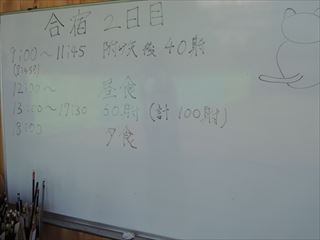 合宿 2日目
9:00〜11:45 後 40射
12:00〜 昼食
13:00〜17:30 60射 (計 100射)
18:00 夕食